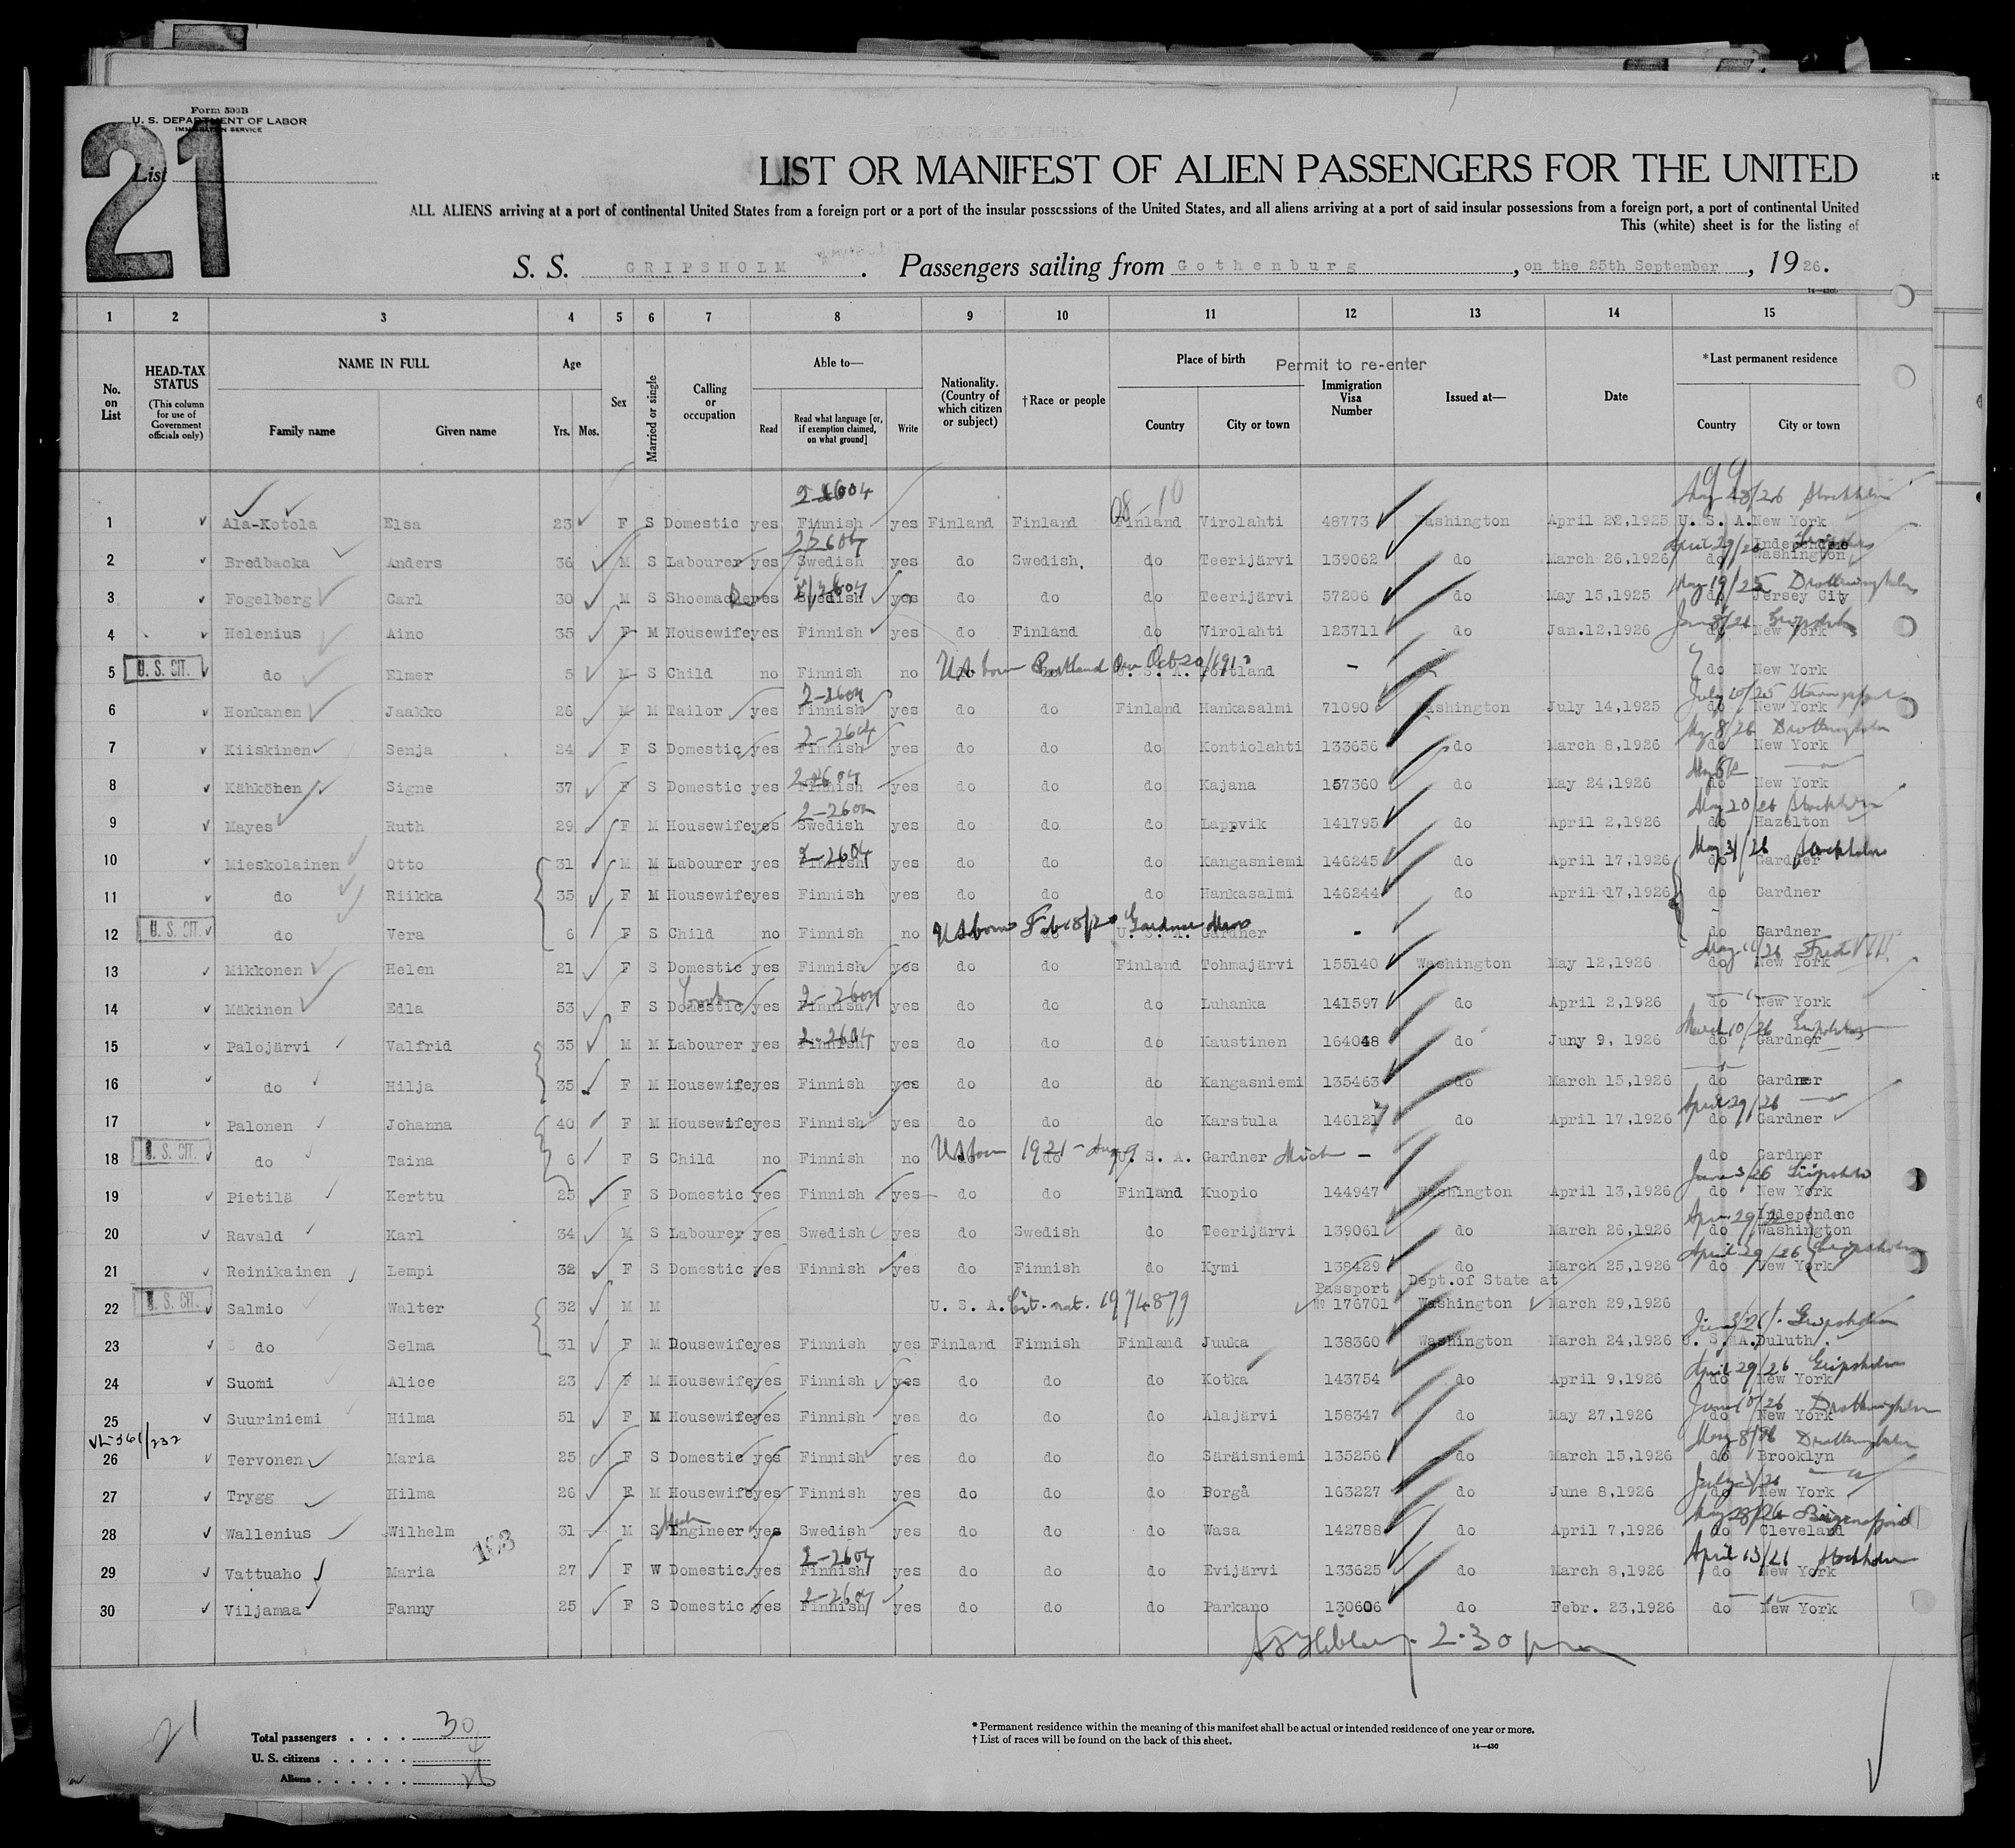 Form 500B
U. S. DEPARTMENT OF LABOR
IMMIGRATION SERVICE
21
List
LIST OR MANIFEST OF ALIEN PASSENGERS FOR THE UNITED
ALL ALIENS arriving at a port of continental United States from a foreign port or a port of the insular possessions of the United States, and all aliens arriving at a port of said insular possessions from a foreign port, a port of continental United
This (white) sheet is for the listing of
S. S. GRIPSHOLM. Passengers sailing from Gothenburg, on the 25th September, 1926.
1 2 3 4 5 6 7 8 9 10 11 12 13 14 15
No. on List HEAD-TAX STATUS (This column for use of Government officials only) NAME IN FULL Family name Given name Age Yrs. Mos. Sex Married or single Calling or occupation Able to— Read Read what language [or, if exemption claimed, on what ground] Write Nationality. (Country of which citizen or subject) †Race or people Place of birth Country City or town Permit to re-enter Immigration Visa Number Issued at— Date *Last permanent residence Country City or town
2-2604 08-10 99 May 28/26 Stockholm
1 Ala-Kotola Elsa 23 F S Domestic yes Finnish yes Finland Finland Finland Virolahti 48773 Washington April 22,1925 U. S. A. New York
April 29/26 Independce
2 Bredbacka Anders 36 M S Labourer yes Swedish yes do Swedish. do Teerijärvi 139062 do March 26,1926 do Washington
May 19/25 Drottningholm
3 Fogelberg Carl 30 M S Shoemacker yes Swedish yes do do do Teerijärvi 57206 do May 15,1925 do Jersey City
4 Helenius Aino 35 F M Housewife yes Finnish yes do Finland do Virolahti 123711 do Jan.12,1926 do New York
5 U. S. CIT. do Elmer 5 M S Child no Finnish no do do U. S. A. Portland - do New York
US born Portland Ore Oct 20/191
2-2604 July 10/25
6 Honkanen Jaakko 26 M M Tailor yes Finnish yes do do Finland Hankasalmi 71090 Washington July 14,1925 do New York
2-2604 May 8/26 Drottningholm
7 Kiiskinen Senja 24 F S Domestic yes Finnish yes do do do Kontiolahti 133656 do March 8,1926 do New York
8 Kähkönen Signe 37 F S Domestic yes Finnish yes do do do Kajana 157360 do May 24,1926 do New York
2-2604 May 20/26 Stockholm
9 Mayes Ruth 29 F M Housewife yes Swedish yes do do do Lappvik 141795 do April 2,1926 do Hazelton
2-2604 May 31/26 Stockholm
10 Mieskolainen Otto 31 M M Labourer yes Finnish yes do do do Kangasniemi 146245 do April 17,1926 do Gardner
11 do Riikka 35 F M Housewife yes Finnish yes do do do Hankasalmi 146244 do April 17,1926 do Gardner
12 U. S. CIT. do Vera 6 F S Child no Finnish no do do U. S. A. Gardner - do Gardner
US born Feb 18/20 Gardner Mass
13 Mikkonen Helen 21 F S Domestic yes Finnish yes do do Finland Tohmajärvi 155140 Washington May 12,1926 do New York
2-2604
14 Mäkinen Edla 53 F S Domestic yes Finnish yes do do do Luhanka 141597 do April 2,1926 do New York
2-2604 March 10/26
15 Palojärvi Valfrid 35 M M Labourer yes Finnish yes do do do Kaustinen 164048 do Juny 9, 1926 do Gardner
16 do Hilja 35 F M Housewife yes Finnish yes do do do Kangasniemi 135463 do March 15,1926 do Gardner
April 29/26
17 Palonen Johanna 40 F M Housewife yes Finnish yes do do do Karstula 146121 do April 17,1926 do Gardner
18 U. S. CIT. do Taina 6 F S Child no Finnish no do do U. S. A. Gardner Mich - do Gardner
US born 1921 - Aug 9
June 3/26 Gripsholm
19 Pietilä Kerttu 25 F S Domestic yes Finnish yes do do Finland Kuopio 144947 Washington April 13,1926 do New York
April 29/26 Independenc
20 Ravald Karl 34 M S Labourer yes Swedish yes do Swedish do Teerijärvi 139061 do March 26,1926 do Washington
April 29/26 Gripsholm
21 Reinikainen Lempi 32 F S Domestic yes Finnish yes do Finnish do Kymi 138429 do March 25,1926 do New York
Passport Dept.of State at
22 U. S. CIT. Salmio Walter 32 M M U. S. A. Cit. nat. 1974879 № 176701 Washington March 29,1926
June 3/26 Gripsholm
23 do Selma 31 F M Housewife yes Finnish yes Finland Finnish Finland Juuka 138360 Washington March 24,1926 U. S. A. Duluth
April 29/26 Gripsholm
24 Suomi Alice 23 F M Housewife yes Finnish yes do do do Kotka 143754 do April 9,1926 do New York
June 10/26 Drottningholm
25 Suuriniemi Hilma 51 F M Housewife yes Finnish yes do do do Alajärvi 158347 do May 27,1926 do New York
May 8/26 Drottningholm
26 Tervonen Maria 25 F S Domestic yes Finnish yes do do do Säräisniemi 135256 do March 15,1926 do Brooklyn
27 Trygg Hilma 26 F M Housewife yes Finnish yes do do do Borgå 163227 do June 8,1926 do New York
May 28/26
28 Wallenius Wilhelm 31 M S Engineer yes Swedish yes do do do Wasa 142788 do April 7,1926 do Cleveland
2-2604 April 13/26 Stockholm
29 Vattuaho Maria 27 F W Domestic yes Finnish yes do do do Evijärvi 133625 do March 8,1926 do New York
2-2604
30 Viljamaa Fanny 25 F S Domestic yes Finnish yes do do do Parkano 130606 do Febr. 23,1926 do New York
2.30 pm
21
Total passengers . . . . 30
U. S. citizens . . . . . 4
Aliens . . . . . . 26
* Permanent residence within the meaning of this manifest shall be actual or intended residence of one year or more.
† List of races will be found on the back of this sheet.
14—430